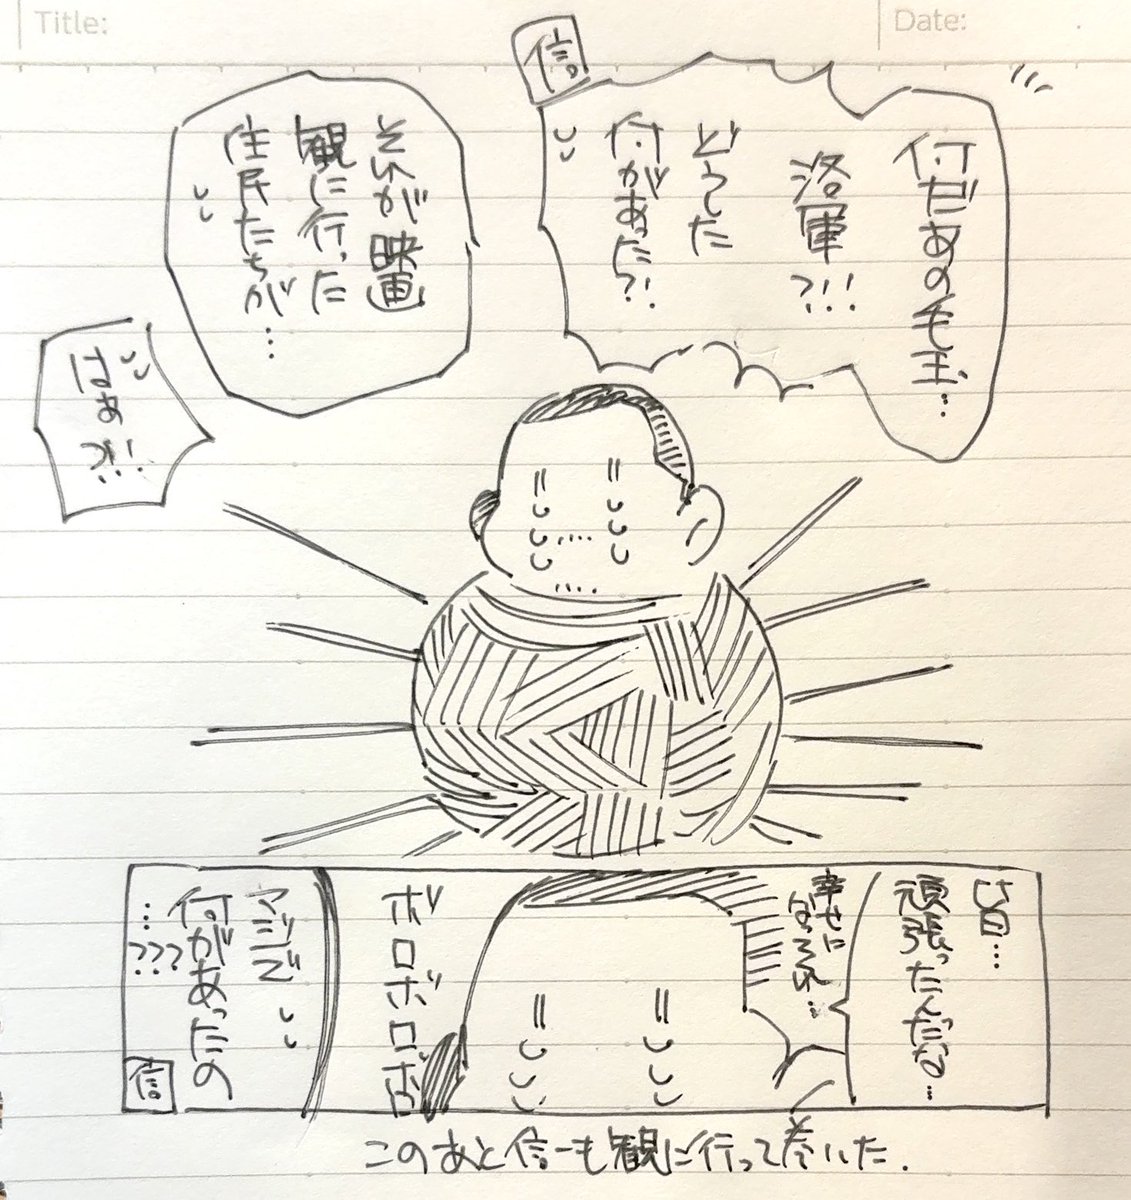 Title:
Date:
信。
何だあの毛玉…
洛軍?!!
どうした
何があった?!
それが映画
観に行った
住民たちが…
はぁ?!!
頑張ったんだな…
幸せに
ボロボロボロ
マジで
何があったの
…???
信
このあと信一も観に行って